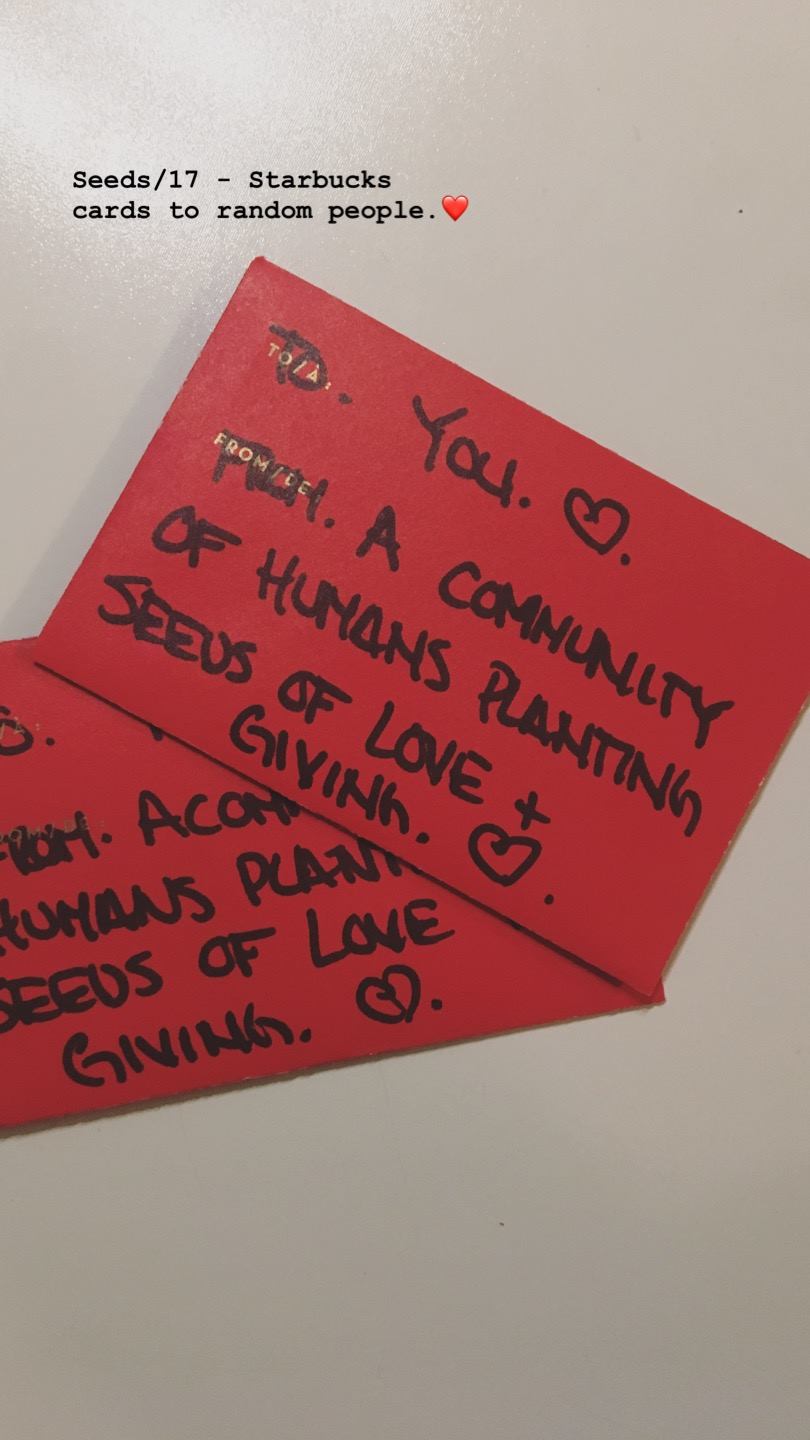 Seeds/17 - Starbucks
cards to random people.❤️
TO/À:
TO. YOU. ♡.
FROM/DE:
FROM. A COMMUNITY
OF HUMANS PLANTING
SEEDS OF LOVE +
GIVING. ♡.
FROM/DE:
FROM. A COM
HUMANS PLANT
SEEDS OF LOVE
GIVING. ♡.